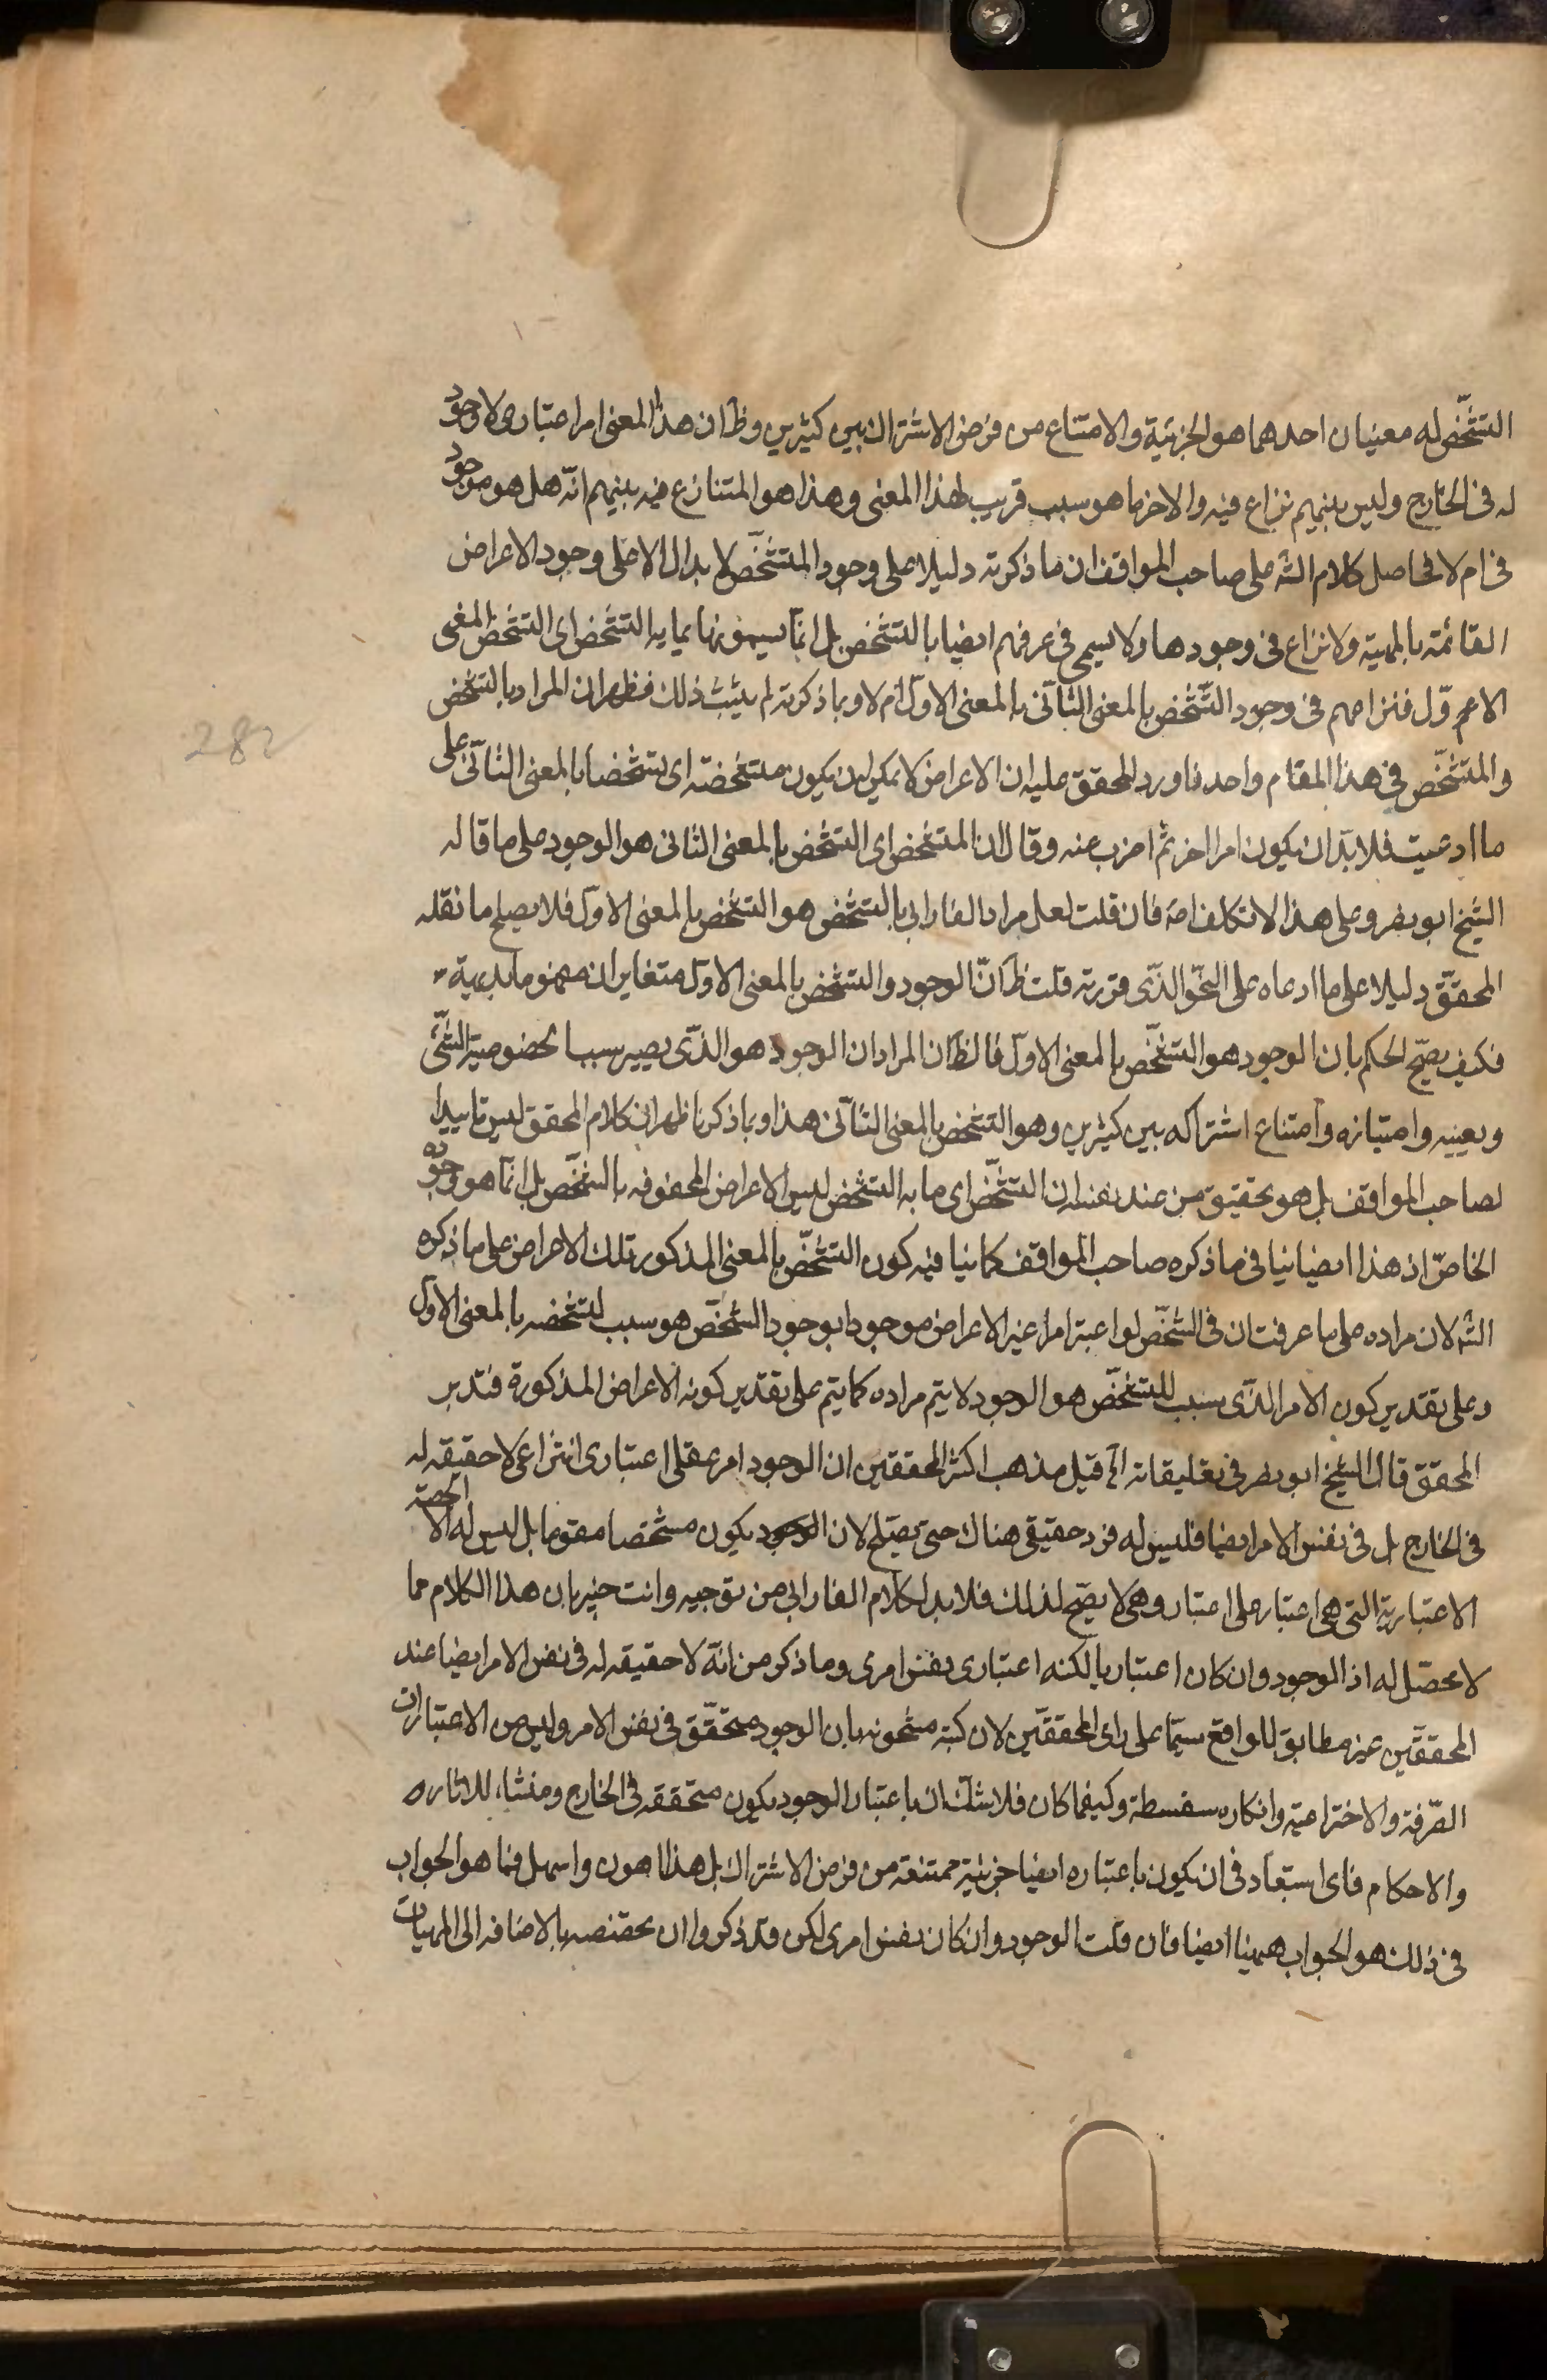 التشخّص له معنيان احدهما هو الجزئية والامتناع من فرض الاشتراك بين كثيرين وظ ان هذا المعنى امر اعتبارى لا وجود
له فى الخارج وليس بينهم نزاع فيه والاخر ما هو سبب قريب لهذا المعنى وهذا هو المتنازع فيه بينهم انّه هل هو موجود
فى ام لا فحاصل كلام الشه على صاحب المواقف ان ما ذكرته دليلا على وجود المتشخّص لا يدل الا على وجود الاعراض
القائمة بالمهية ولا نزاع فى وجودها ولا يسمى فى عرفهم ايضا بالتشخص بل انّما يسمونها بما به التشخص اى التشخص المعنى
الاعم وّل فنزاعهم فى وجود التّشخص بالمعنى الثانى بالمعنى الاول ام لا وبما ذكرته لم يثبت ذلك فظهر ان المراد بالتشخص
والمتشخّص فى هذا المقام واحد فاورد المحقق عليه ان الاعراض لا يمكن ان يكون متشخصة اى تشخصا بالمعنى الثانى على
ما ادعيت فلا بدّ ان يكون امرا اخر ثم اضرب عنه وقال ان المتشخص اى التشخص بالمعنى الثانى هو الوجود على ما قاله
الشيخ ابو نصر وعلى هذا لا تكلف اصه فان قلت لعل مراد الفارابى بالتشخص هو التشخص بالمعنى الاول فلا يصلح ما نقله
المحقّق دليلا على ما ادعاه على النحو الذّى قررته قلت ظ انّ الوجود والتشخص بالمعنى الاول متغايران مفهوما بديهية
فكيف يصحّ الحكم بان الوجود هو التشخّص بالمعنى الاول فالظ ان المراد ان الوجود هو الذّى يصير سببا لخصوصية الشّئ
وتعينه وامتيازه وامتناع اشتراكه بين كثيرين وهو التشخص بالمعنى الثانى هذا وبما ذكرنا ظهر ان كلام المحقق ليس تاييدا
لصاحب المواقف بل هو تحقيق من عند نفسه ان التشخّص اى ما به التشخص ليس الاعراض المحفوفه بالشخّص بل انّما هو وجوده
الخاصّ اذ هذا ايضا ينافى ما ذكره صاحب المواقف كما ينافيه كون التشخّص بالمعنى المذكور تلك الاعراض على ما ذكره
الشه لان مراده على ما عرفت ان فى الشخّص لو اعتبر امرا غير الاعراض موجودا بوجود الشخّص هو سبب لتشخصه بالمعنى الاول
وعلى تقدير كون الامر الذّى سبب للتشخّص هو الوجود لا يتم مراده كما يتم على تقدير كونه الاعراض المذكورة فتدبر
المحقق قال الشيخ ابو نصر فى تعليقاته اه قيل مذهب اكثر المحققين ان الوجود امر عقلى اعتبارى انتزاعى لا حقيقه له
فى الخارج بل فى نفس الامر ايضا فليس له فرد حقيقى هناك حتى يصلح لان يكون مشخصا مقوما بل ليس له الا الحصة
الاعتبارية التى هى اعتبار على اعتبار وهى لا يصح لذلك فلا بد لكلام الفارابى من توجيه وانت خبير بان هذا الكلام مما
لا محصّل له اذ الوجود وان كان اعتباريا لكنه اعتبارى نفس امرى وما ذكر من انّه لا حقيقه له فى نفس الامر ايضا عند
المحققين غير مطابق للواقع سيمّا على راى المحققين لان كتبه مشحونه بان الوجود متحقّق فى نفس الامر وليس من الاعتبارات
الصّرفة والاختراعية وانكاره سفسطة وكيفما كان فلا شك ان باعتبار الوجود يكون متحققه فى الخارج ومنشاء للاثاره
والاحكام فاى استبعاد فى ان يكون باعتباره ايضا جزئية ممتنعة من فرض الاشتراك بل هذا اهون واسهل فما هو الجواب
فى ذلك هو الجواب ههنا ايضا فان قلت الوجود وان كان نفس امرى لكن قد ذكروا ان تخصصه بالاضافه الى المهيات
282